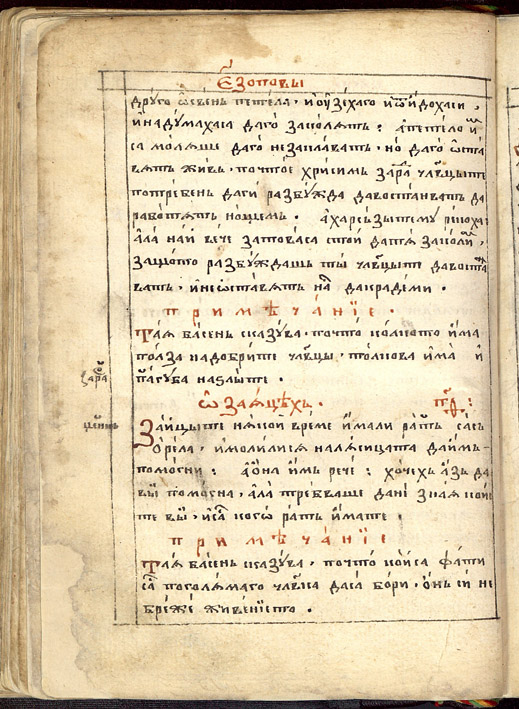 Езоповы
дрꙋго ѿсвень петела, и оузехаго и ѿидохаси,
и надꙋмахаса даго заколятъ: а петело и
са моляше даго незаплавать, но даго ѿста
вятъ живь, почтое хрисимъ зара члвцыте
потребень даги разбꙋжда давостанватъ да
работятъ нощемъ. а харсъзыте мꙋ рекоха
ала най вече затоваса датя заколи,
защото разбꙋждашъ ты члвцыте давоста
ватъ, и неѡставятъ на дакрадеми.
примѣчанїе.
Тая басень сказꙋва, почто колкото има
полза надобрите члвцы, толкова има и
пагуба наѕлыте.
зара
ѡ заяцѣхъ.
Зайцыте някой време имали ратъ сасъ
Орела, и молилися налисицата даимъ
помогни: а она имъ рече: хочехъ азъ да
вы помогна, ала требваше дані зная кои
те вы, и са кого ратъ имате.
примѣчанїе
Тая басень сказꙋва, почто коиса фати
са поголямаго члвка даса бори, онъ си не
бреже живенїето.